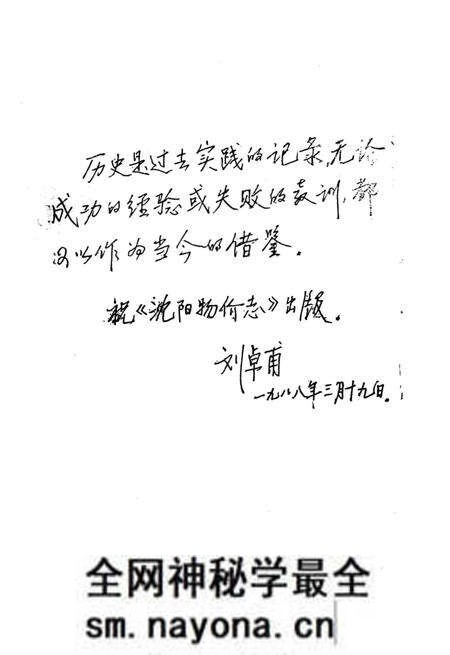 历史是过去实践的记录,无论
成功的经验或失败的教训,都
以作为当今的借鉴。
祝《沈阳物价志》出版。
刘卓甫
一九八八年三月十九日.
全网神秘学最全
sm.nayona.cn